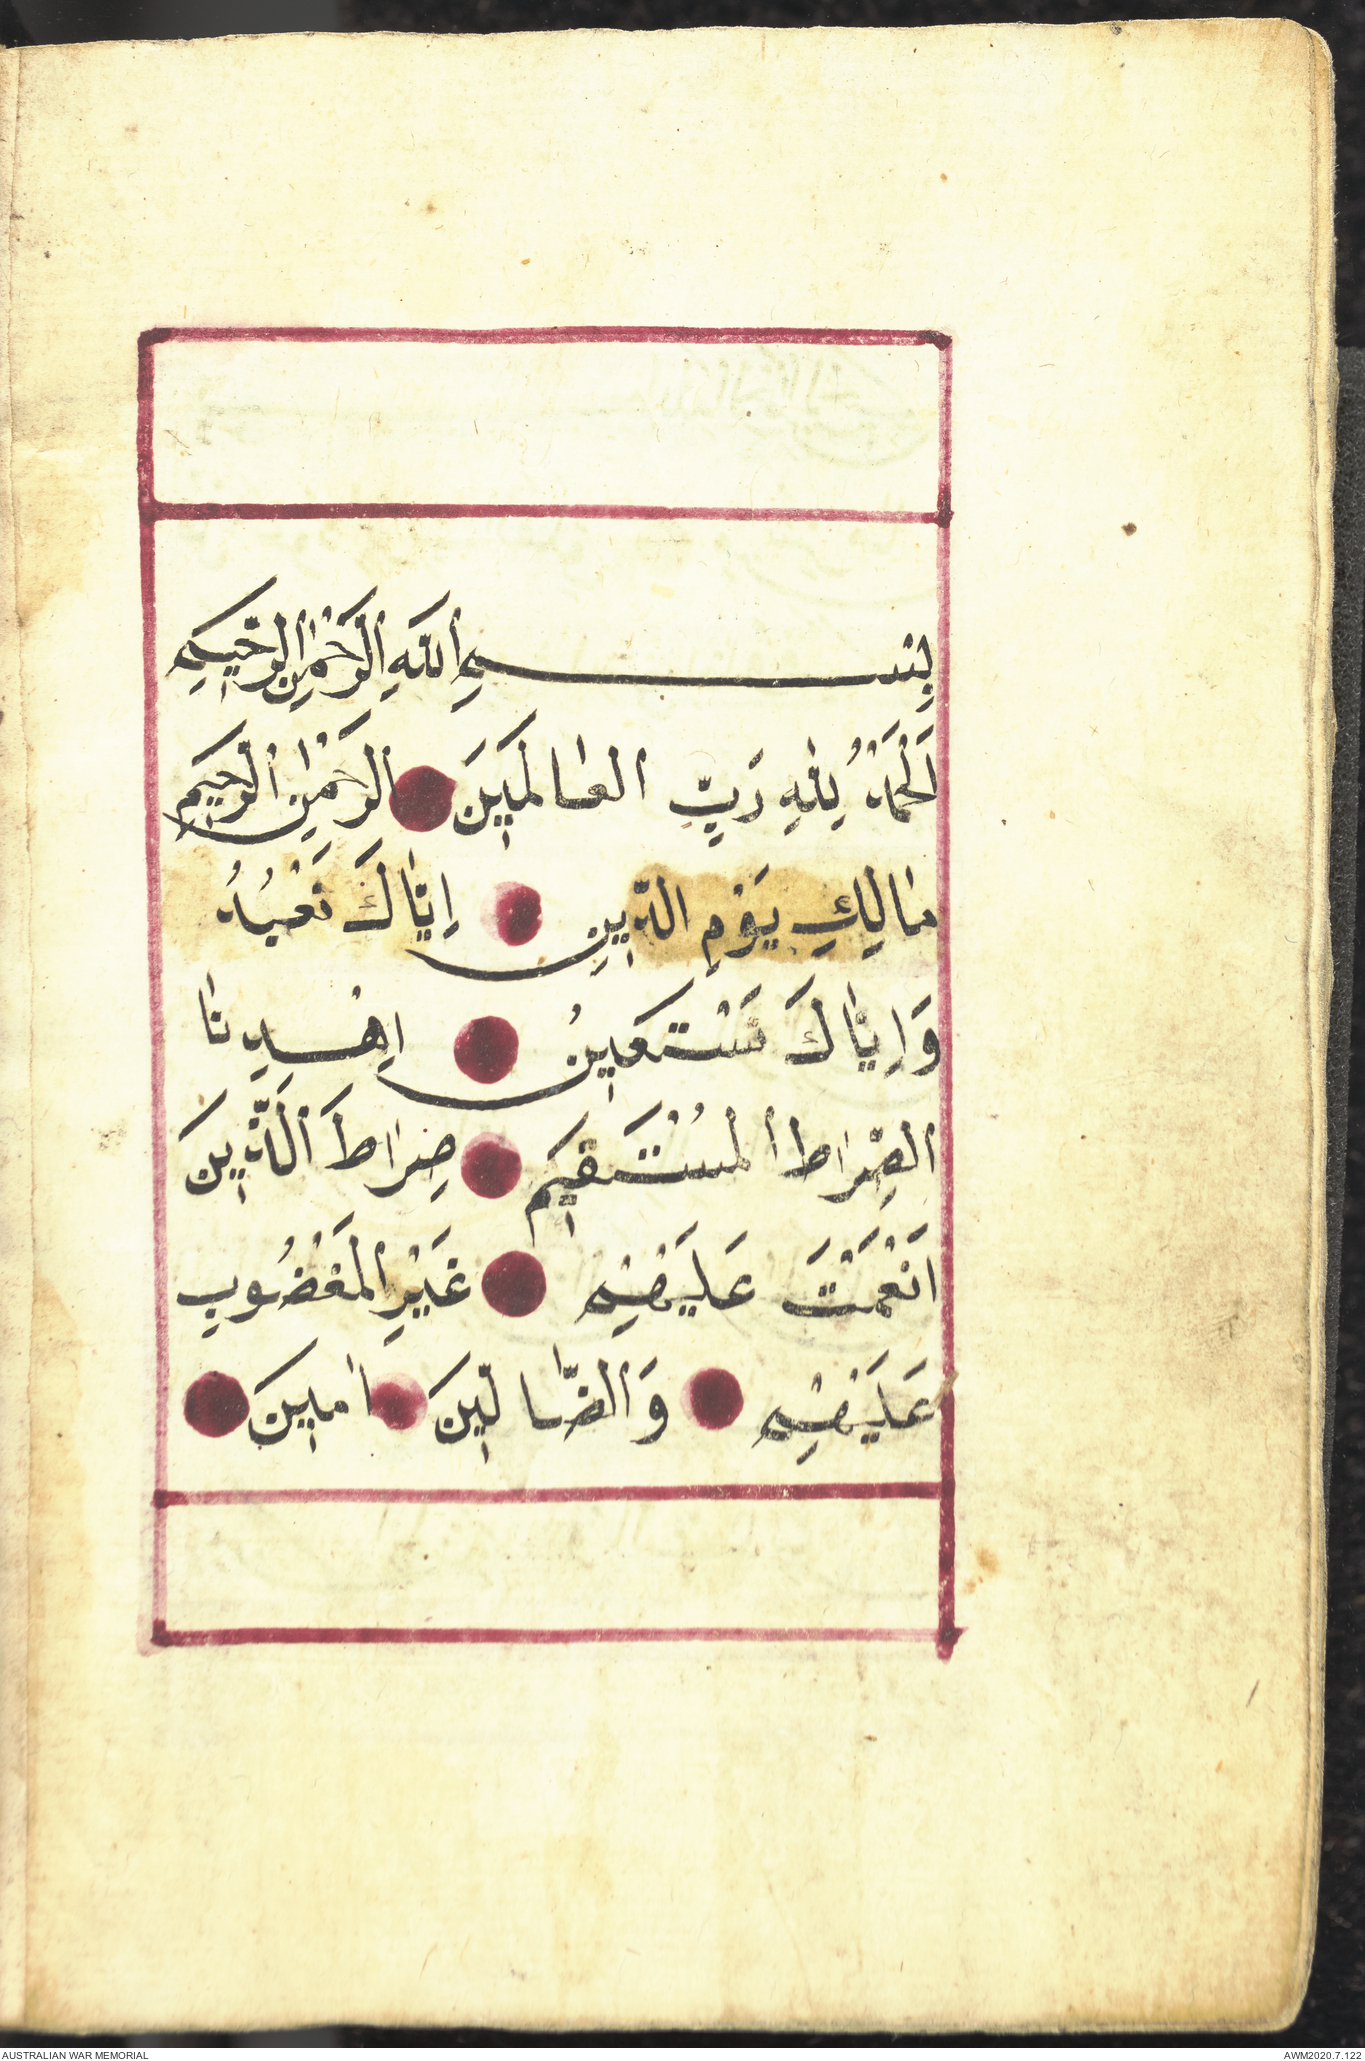 بِسْمِ اللّٰهِ الرَّحْمٰنِ الرَّحٖيمِ
اَلْحَمْدُ لِلّٰهِ رَبِّ العٰالَمٖينَ الرَحْمٰنِ الرَّحٖيمِ
مٰالِكِ يَوْمِ الدّٖينِ اِيّٰاكَ نَعْبُدُ
وَاِيّٰاكَ نَسْتَعٖينُ اِهْدِنٰا
الصِّرٰاطَ المُسْتَقٖيمَ صِرٰاطَ اَلَّذٖينَ
اَنْعَمْتَ عَلَيْهِمْ غَيْرِ المَغْضُوبِ
عَلَيْهِمْ وَالضّٰالّٖينَ اٰمٖينَ
AUSTRALIAN WAR MEMORIAL
AWM2020.7.122